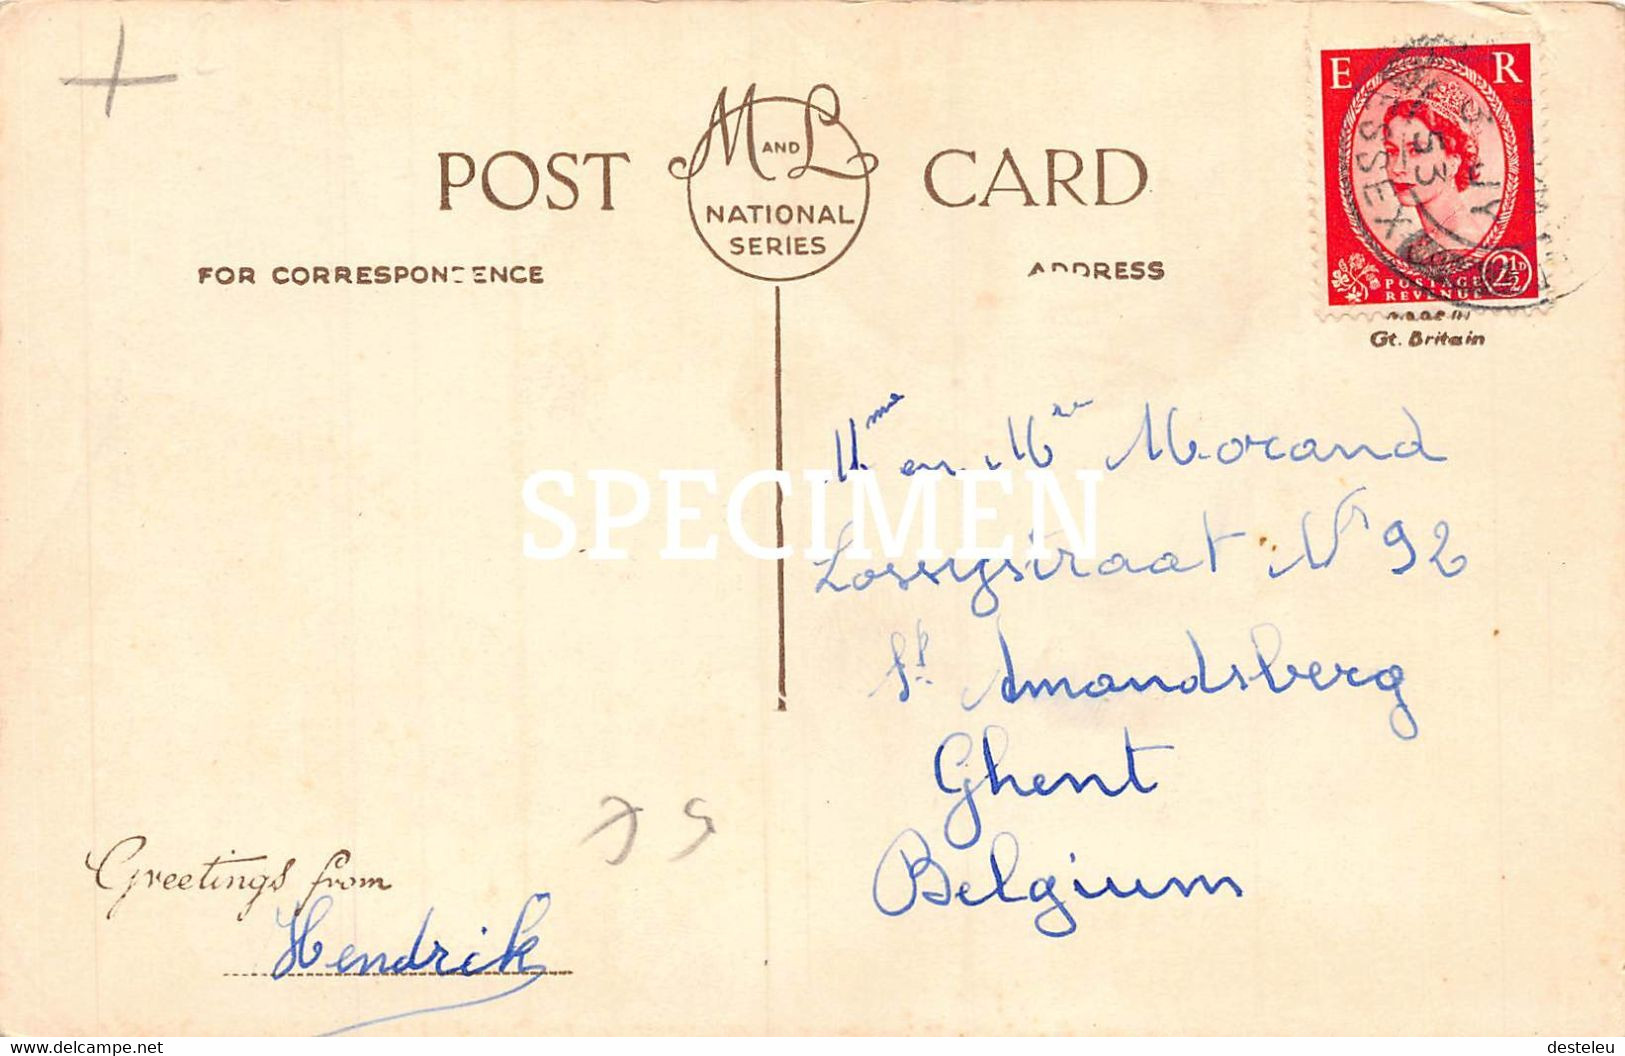 POST CARD
M AND L
NATIONAL
SERIES
FOR CORRESPONDENCE
ADDRESS
E R
POSTAGE
REVENUE
2½D
5 JY
53
ESSEX
MADE IN
Gt. Britain
Mme en Mr Morand
Lossystraat Nr 92
St Amandsberg
Ghent
Belgium
Greetings from
Hendrik
SPECIMEN
delcampe.net
desteleu